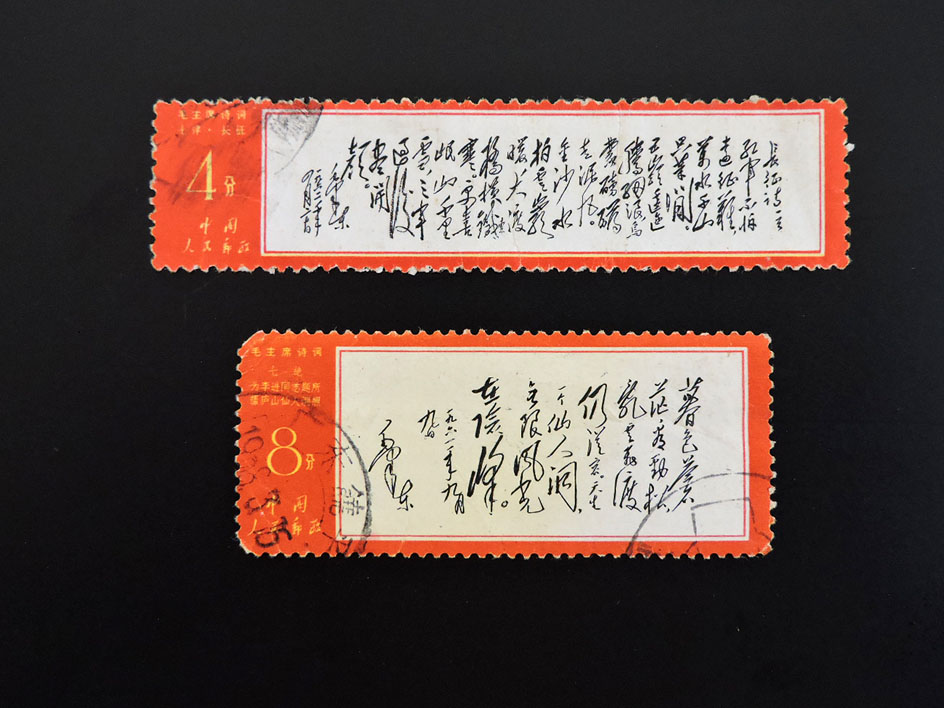 毛主席诗词
七律·长征
4分
中国
人民邮政
長征詩一首
紅軍不怕
遠征難，
萬水千山
只等闲。
五嶺逶迤
騰細浪，烏
蒙磅礴
走泥丸。
金沙水
拍雲崖
暖，大渡
橋横鐵
索寒。更喜
岷山千里
雪，三軍
過後
盡開
顔。
毛泽东
毛主席诗词
七绝
为李进同志题所
摄庐山仙人洞照
8分
中国
人民邮政
暮色蒼
茫看劲松，
乱雲飛渡
仍從容。天生
一个仙人洞，
无限風光
在险峰。
一九六一年九月
九日
毛泽东